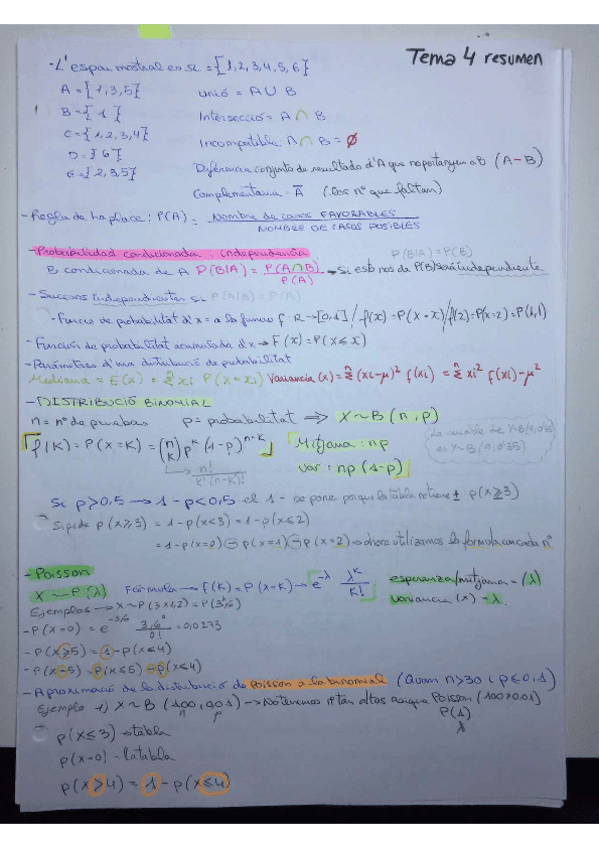 Tema 4 resumen
- L'espai mostral es Ω = {1,2,3,4,5,6}
A = {1,3,5}  Unió = A ∪ B
B = {1}  Intersecció = A ∩ B
C = {1,2,3,4}  Incompatible: A ∩ B = ∅
D = {6}  Diferencia conjunto de resultado d'A que no pertanyen a B (A-B)
E = {2,3,5}  Complementaria = Ā (los nº que faltan)
- Regla de la place: P(A) = NOMBRE DE CASOS FAVORABLES / NOMBRE DE CASOS POSIBLES
- Probabilidad condicionada i independencia  P(B|A) = P(B)
B condicionada de A P(B|A) = P(A∩B) / P(A) → Si esto nos da P(B) será independiente
- Sucesos independientes si P(A|B) = P(A)
- Funcio de probabilitat d'x = a la funcio f: R → [0,1] / f(x) = P(X=x) / f(2) = P(X=2) =
- Funció de probabilitat acumulada d'x → F(x) = P(X≤x)
- Paràmetres d'una distribució de probabilitat
Mediana = E(x) = Σ xi P(X=xi) Variancia (x) = Σ (xi-μ)² f(xi) = Σ xi² f(xi) - μ²
- DISTRIBUCIÓ BINOMIAL
n = nº de pruebas  p = probabilitat ⇒ X~B(n,p)
f(K) = P(X=K) = (n K) p^K (1-p)^n-K  Mitjana: np
n! / K!(n-K)!  var: np(1-p)
Si p>0,5 → 1-p<0,5 el 1- se pone porque la tabla
Si pide p(x≥3) = 1-p(x<3) = 1-p(x≤2)
= 1-p(x=0) - p(x=1) - p(x=2) → ahora utilizamos la formula con cada nº
- Poisson
X~P(λ)  Fórmula → f(K) = P(X=K) → e^-λ λ^K / K!  esperanza/mitjana = (λ)
Ejemplos → X~P(3×1,2) = P(3'6)  variancia (x) = λ
- P(X=0) = e^-3,6 3,6⁰ / 0! = 0,0273
- P(X≥5) = 1-P(X≤4)
- P(X=5) = P(X≤5) - P(X≤4)
- Aproximació de la distribució de Poisson a la binomial (Quan n>30 i p≤0,1)
Ejemplo 1) X~B(100, 0,01) → No tenemos nº tan altos aunque Poisson (100×0.01)
n p  P(1)
λ
p(x≤3) → tabla
p(x=0) - la tabla
p(x>4) = 1-p(x≤4)